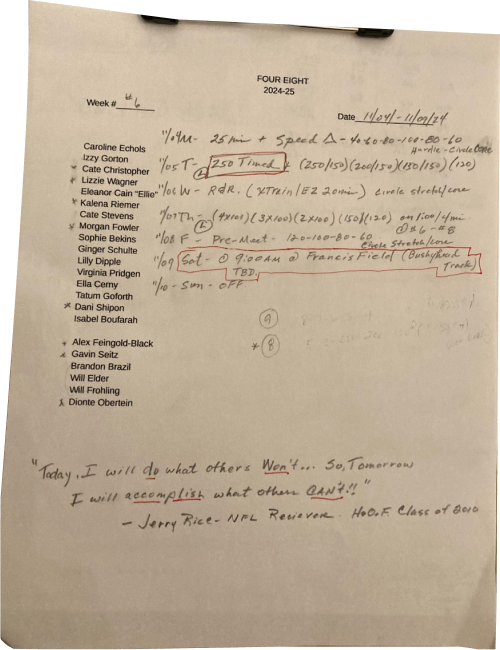 FOUR EIGHT
2024-25
Week # #6
Date 11/04/-11/09/24
Caroline Echols
Izzy Gorton
* Cate Christopher
* Lizzie Wagner
Eleanor Cain "Ellie"
* Kalena Riemer
Cate Stevens
* Morgan Fowler
Sophie Bekins
Ginger Schulte
Lilly Dipple
Virginia Pridgen
Ella Cerny
Tatum Goforth
* Dani Shipon
Isabel Boufarah
* Alex Feingold-Black
* Gavin Seitz
Brandon Brazil
Will Elder
Will Frohling
* Dionte Obertein
11/04 M- 25 min + Speed Δ - 40-60-80-100-80-60
Hurdle-Circle Core
11/05 T- 250 Timed + (250/150)(200/150)(150/150)(120)
11/06 W- R&R. (XTrain/EZ 20min) Circle stretch/core
11/07 Th- (4x100)(3x100)(2x100)(150)(120) on 100/4min
11/08 F- Pre-Meet - 120-100-80-60
Circle Stretch/core
11/09 Sat- @ 9:00AM @ Francis Field (Bushyhead Track)
TBD.
11/10 - Sun - OFF
9
* 8
"Today, I will do what others Won't... So, Tomorrow
I will accomplish what others CAN'T!!"
- Jerry Rice - NFL Reciever. H.O.F. Class of 2010